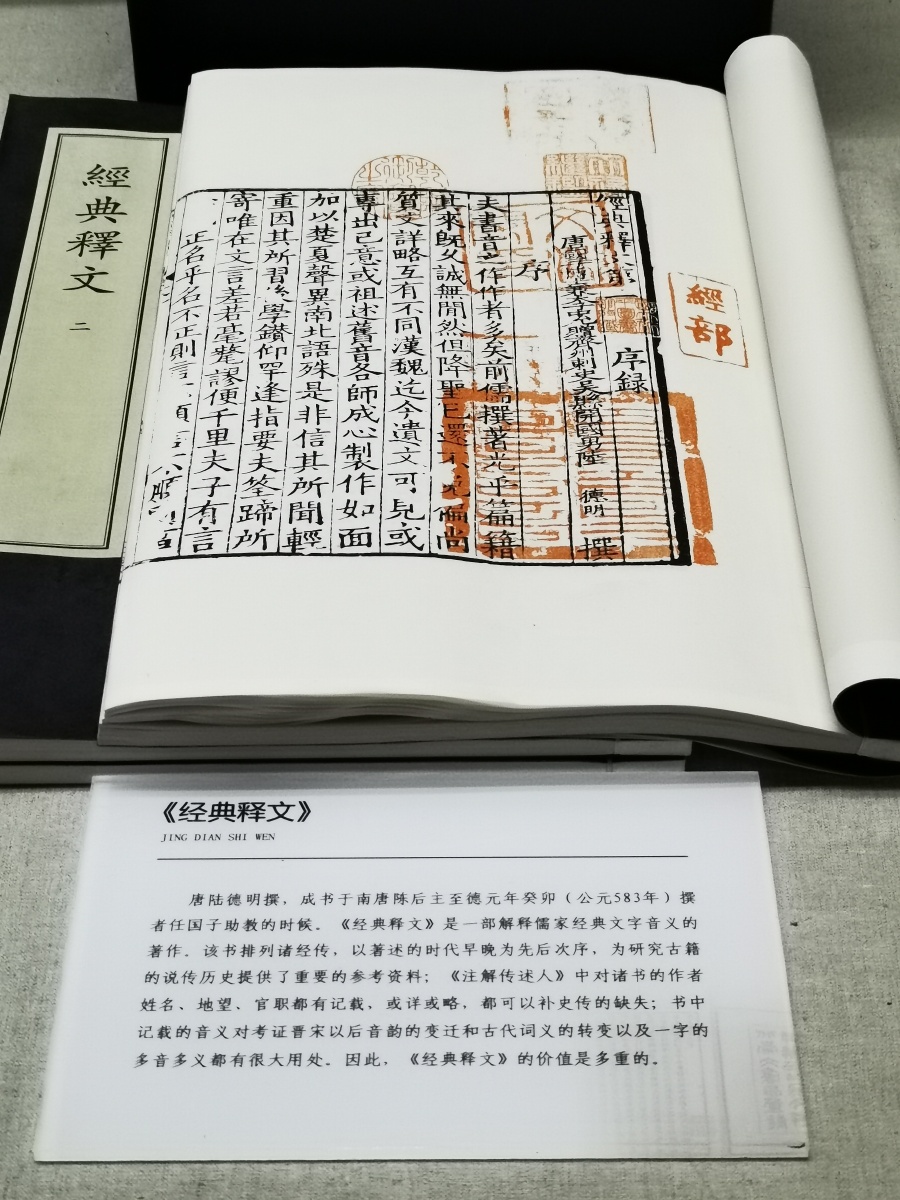 經典釋文
二
經典釋文
序錄
唐國子博士兼太子中允贈齊州刺史吳縣開國男陸 德明 撰
序
夫書音之作作者多矣前儒撰著光乎篇籍
其來既久誠無閒然但降聖已還不免偏尚
質文詳略互有不同漢魏迄今遺文可見或
專出己意或祖述舊音各師成心製作如面
加以楚夏聲異南北語殊是非信其所聞輕
重因其所習後學鑽仰罕逢指要夫筌蹄所
寄唯在文言差若毫氂謬便千里夫子有言
正名乎名不正則言
經部
《经典释文》
JING DIAN SHI WEN
唐陆德明撰，成书于南唐陈后主至德元年癸卯（公元583年）撰
者任国子助教的时候。《经典释文》是一部解释儒家经典文字音义的
著作。该书排列诸经传，以著述的时代早晚为先后次序，为研究古籍
的说传历史提供了重要的参考资料；《注解传述人》中对诸书的作者
姓名、地望、官职都有记载，或详或略，都可以补史传的缺失；书中
记载的音义对考证晋宋以后音韵的变迁和古代词义的转变以及一字的
多音多义都有很大用处。因此，《经典释文》的价值是多重的。